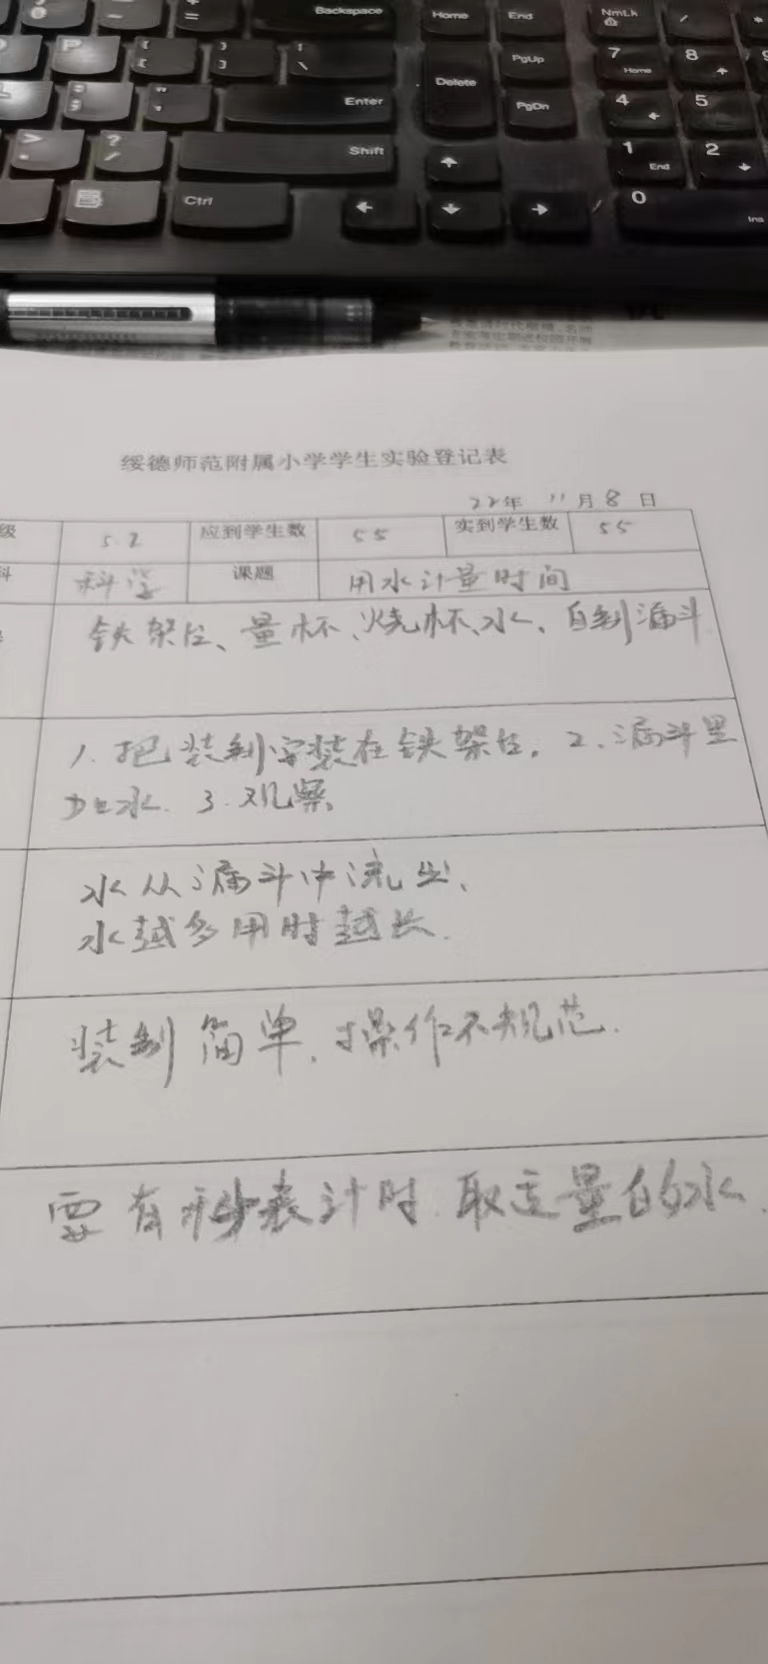 Backspace Home End NmLk
7 Home 8
Enter Delete PgUp
PgDn 4 5
Shift 1 End 2
Ctrl 0 Ins
绥德师范附属小学学生实验登记表
22年 11月8日
级 5.2 应到学生数 55 实到学生数 55
科 科学 课题 用水计量时间
铁架台、量杯、烧杯、水、自制漏斗
1. 把装制安装在铁架台。2. 漏斗里
加水. 3. 观察。
水从漏斗中流出、
水越多用时越长.
装制简单、操作不规范.
要有秒表计时. 取定量的水.